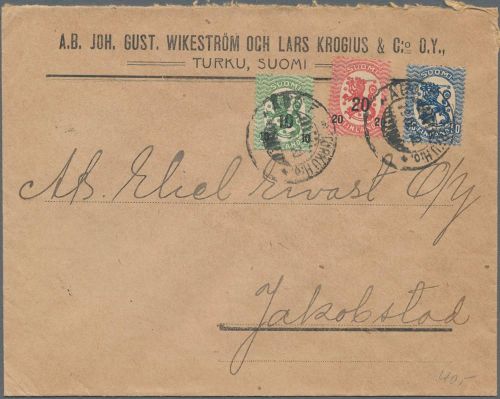 A.B. JOH. GUST. WIKESTRÖM OCH LARS KROGIUS & C:o O.Y.,
TURKU, SUOMI
SUOMI
10
SUOMI
20
20 20
FINLAND
SUOMI
A.B. Eliel Ervast O/Y
Jakobstad
40,-